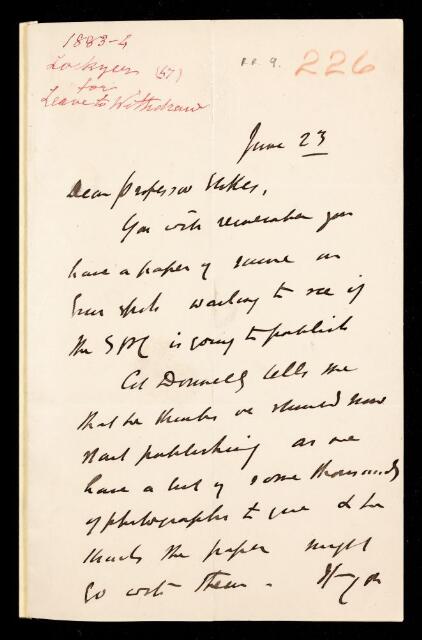 1883-4
Lockyer (57)
for
Leave to Withdraw
RR 9.
226
June 23
Dear Professor Stokes,
You will remember you
have a paper of mine on
Sun spots waiting to see if
the SPC is going to publish
Col Donnelly tells me
that he thinks we should now
start publishing as we
have a lot of some thousands
of photographs to give & he
thinks the paper might
go with them. If you